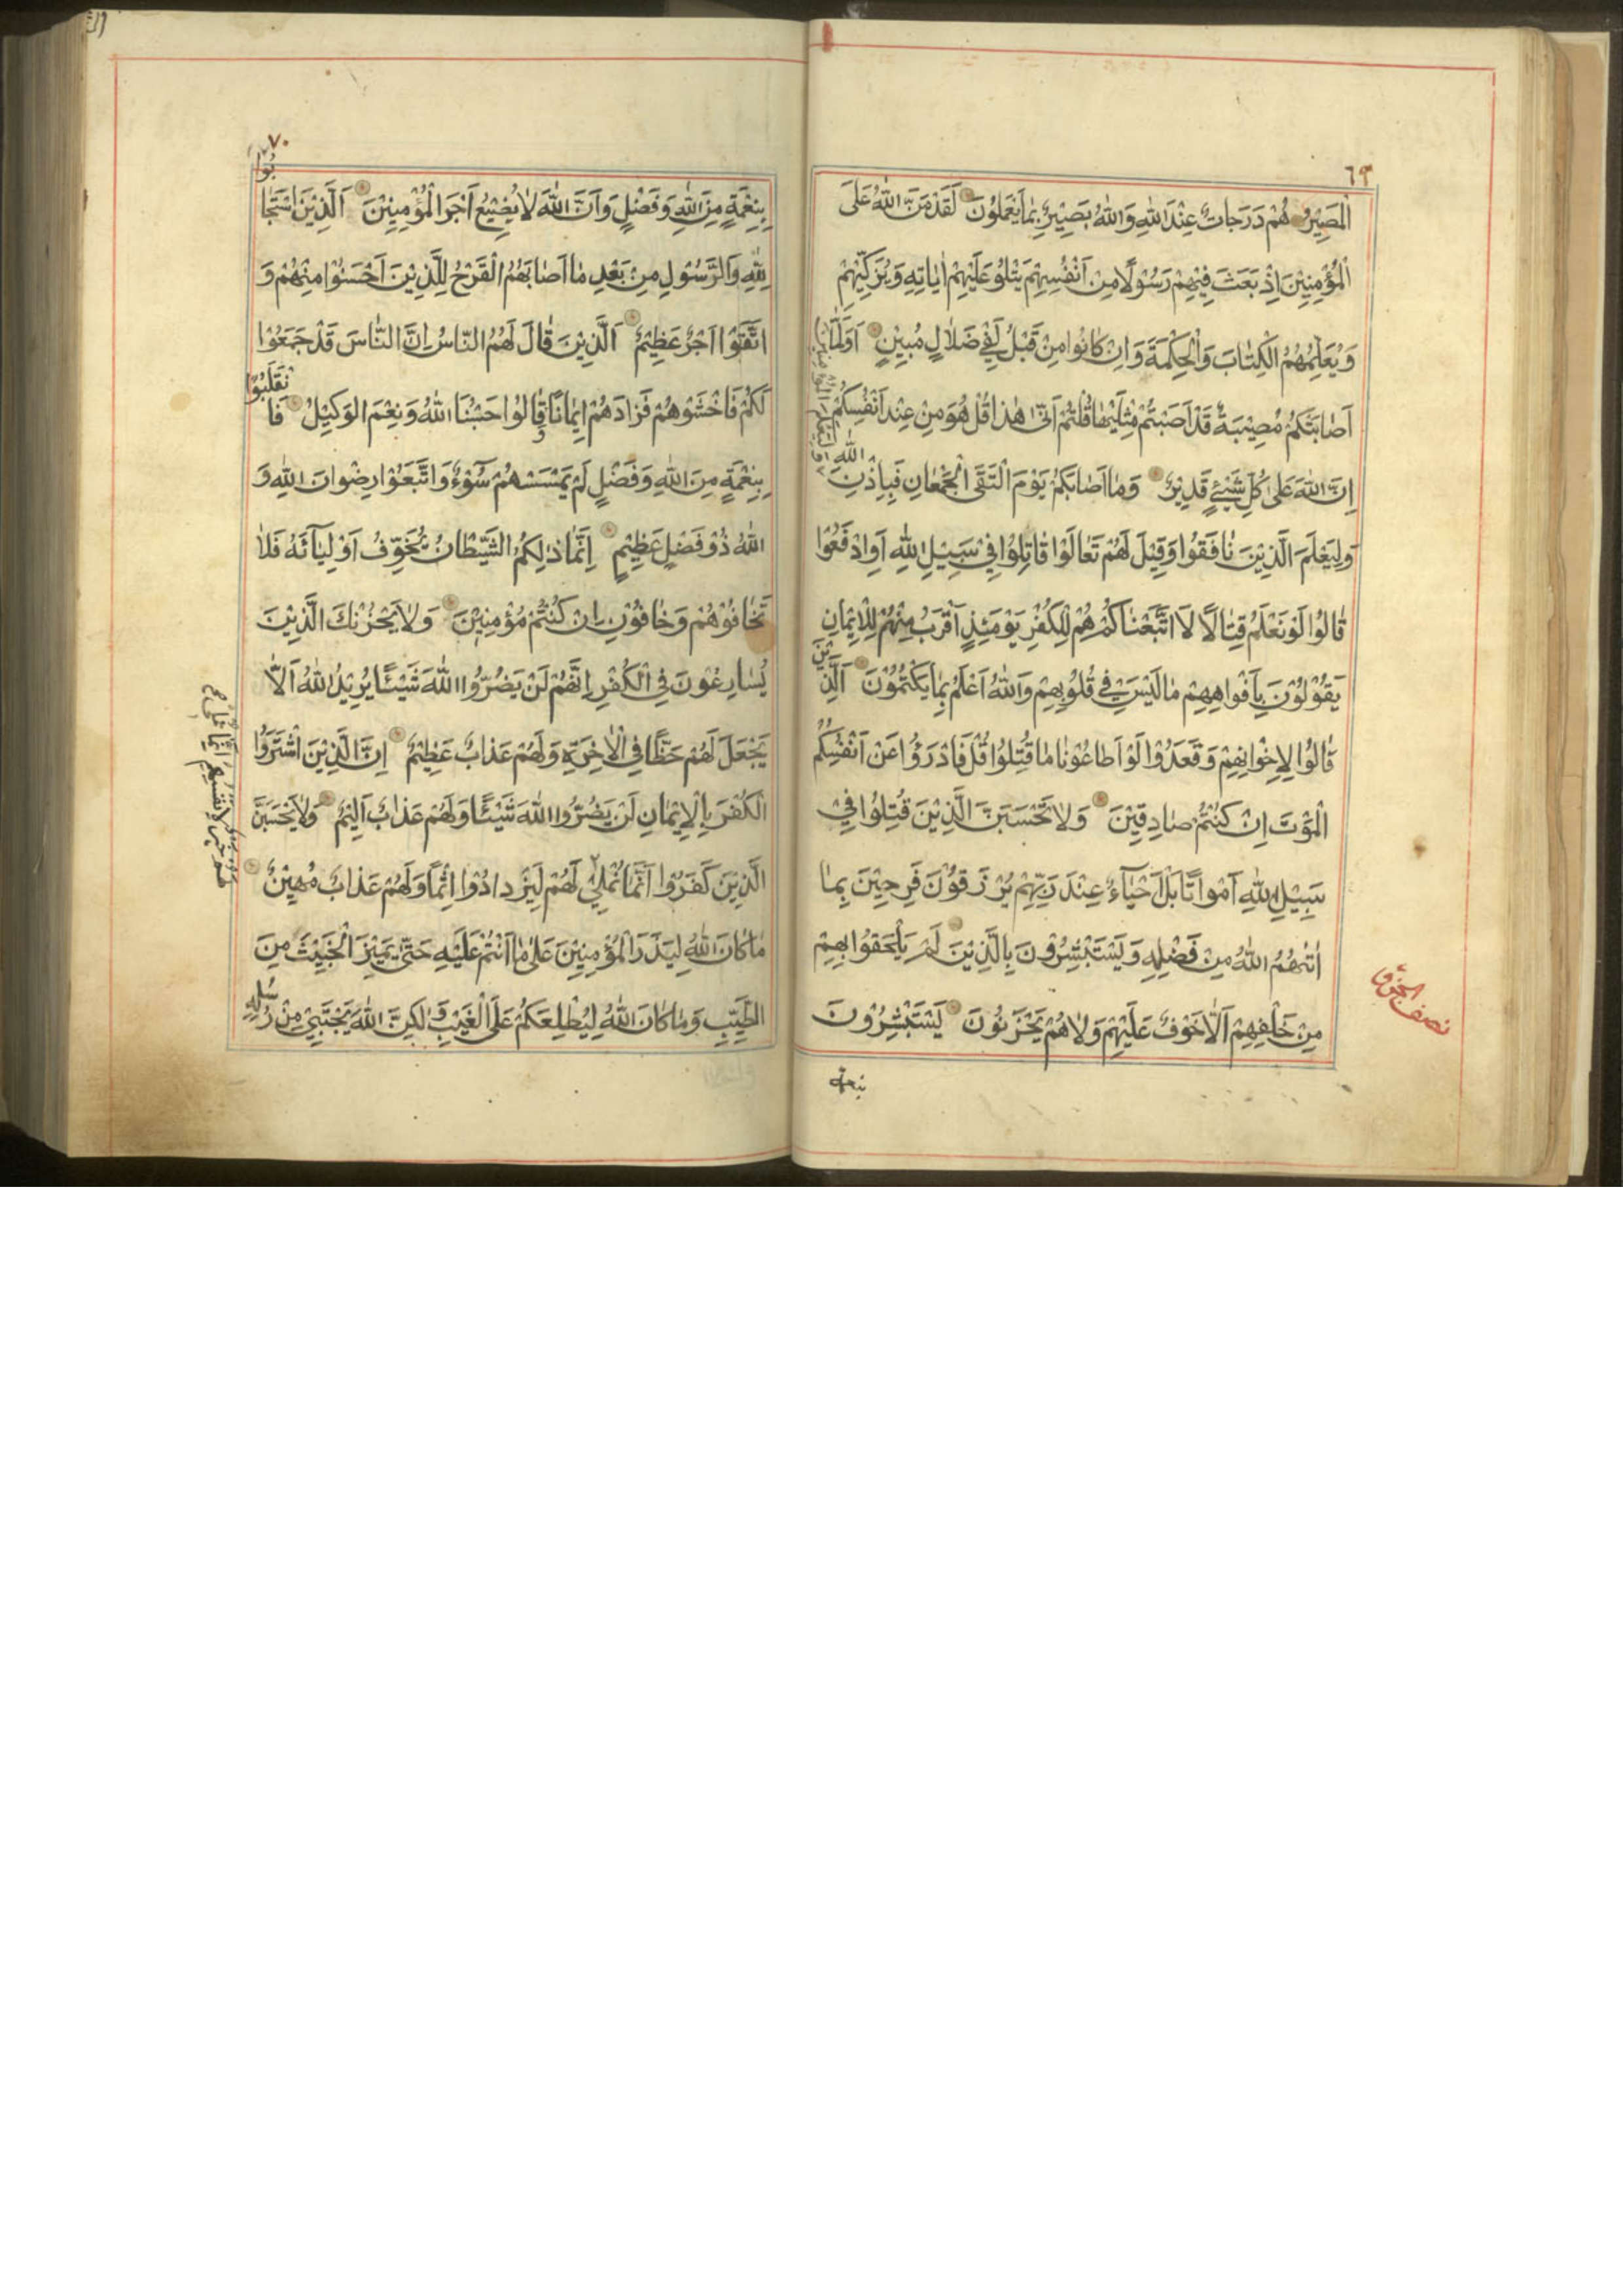 ٦٩
الْمَصِيْرُ هُمْ دَرَجَاتٌ عِنْدَ اللّٰهِ وَاللّٰهُ بَصِيْرٌ بِمَا يَعْمَلُوْنَ لَقَدْ مَنَّ اللّٰهُ عَلَى
الْمُؤْمِنِيْنَ اِذْ بَعَثَ فِيْهِمْ رَسُوْلًا مِنْ اَنْفُسِهِمْ يَتْلُوْ عَلَيْهِمْ اٰيَاتِهِ وَيُزَكِّيْهِمْ
وَيُعَلِّمُهُمُ الْكِتٰابَ وَالْحِكْمَةَ وَاِنْ كٰانُوا مِنْ قَبْلُ لَفِيْ ضَلٰالٍ مُبِيْنٍ اَوَلَمَّا
اَصٰابَتْكُمْ مُصِيْبَةٌ قَدْ اَصَبْتُمْ مِثْلَيْهٰا قُلْتُمْ اَنّٰى هٰذٰا قُلْ هُوَ مِنْ عِنْدِ اَنْفُسِكُمْ
اِنَّ اللّٰهَ عَلٰى كُلِّ شَيْءٍ قَدِيْرٌ وَمٰا اَصٰابَكُمْ يَوْمَ الْتَقَى الْجَمْعٰانِ فَبِاِذْنِ اللّٰهِ
وَلِيَعْلَمَ الَّذِيْنَ نٰافَقُوا وَقِيْلَ لَهُمْ تَعٰالَوْا قٰاتِلُوْا فِيْ سَبِيْلِ اللّٰهِ اَوِ ادْفَعُوْا
قٰالُوْا لَوْ نَعْلَمُ قِتٰالًا لَا اتَّبَعْنٰاكُمْ هُمْ لِلْكُفْرِ يَوْمَئِذٍ اَقْرَبُ مِنْهُمْ لِلْاِيْمٰانِ
يَقُوْلُوْنَ بِاَفْوٰاهِهِمْ مٰا لَيْسَ فِيْ قُلُوْبِهِمْ وَاللّٰهُ اَعْلَمُ بِمٰا يَكْتُمُوْنَ اَلَّذِيْنَ
قٰالُوْا لِاِخْوٰانِهِمْ وَقَعَدُوْا لَوْ اَطٰاعُوْنٰا مٰا قُتِلُوْا قُلْ فَادْرَؤُا عَنْ اَنْفُسِكُمُ
الْمَوْتَ اِنْ كُنْتُمْ صٰادِقِيْنَ وَلٰا تَحْسَبَنَّ الَّذِيْنَ قُتِلُوْا فِيْ
سَبِيْلِ اللّٰهِ اَمْوٰاتًا بَلْ اَحْيٰآءٌ عِنْدَ رَبِّهِمْ يُرْزَقُوْنَ فَرِحِيْنَ بِمٰا
اٰتٰىهُمُ اللّٰهُ مِنْ فَضْلِهِ وَيَسْتَبْشِرُوْنَ بِالَّذِيْنَ لَمْ يَلْحَقُوْا بِهِمْ
مِنْ خَلْفِهِمْ اَلّٰا خَوْفٌ عَلَيْهِمْ وَلٰا هُمْ يَحْزَنُوْنَ يَسْتَبْشِرُوْنَ
نصف الحزب
بنعمة
٧٠
بِنِعْمَةٍ مِنَ اللّٰهِ وَفَضْلٍ وَاَنَّ اللّٰهَ لٰا يُضِيْعُ اَجْرَ الْمُؤْمِنِيْنَ اَلَّذِيْنَ اسْتَجٰابُوْا
لِلّٰهِ وَالرَّسُوْلِ مِنْ بَعْدِ مٰا اَصٰابَهُمُ الْقَرْحُ لِلَّذِيْنَ اَحْسَنُوْا مِنْهُمْ وَ
اتَّقَوْا اَجْرٌ عَظِيْمٌ اَلَّذِيْنَ قٰالَ لَهُمُ النّٰاسُ اِنَّ النّٰاسَ قَدْ جَمَعُوْا
لَكُمْ فَاخْشَوْهُمْ فَزٰادَهُمْ اِيْمٰانًا وَقٰالُوْا حَسْبُنَا اللّٰهُ وَنِعْمَ الْوَكِيْلُ فَانْقَلَبُوْا
بِنِعْمَةٍ مِنَ اللّٰهِ وَفَضْلٍ لَمْ يَمْسَسْهُمْ سُوْٓءٌ وَاتَّبَعُوْا رِضْوٰانَ اللّٰهِ وَ
اللّٰهُ ذُوْ فَضْلٍ عَظِيْمٍ اِنَّمٰا ذٰلِكُمُ الشَّيْطٰانُ يُخَوِّفُ اَوْلِيٰآئَهُ فَلٰا
تَخٰافُوْهُمْ وَخٰافُوْنِ اِنْ كُنْتُمْ مُؤْمِنِيْنَ وَلٰا يَحْزُنْكَ الَّذِيْنَ
يُسٰارِعُوْنَ فِي الْكُفْرِ اِنَّهُمْ لَنْ يَضُرُّوا اللّٰهَ شَيْئًا يُرِيْدُ اللّٰهُ اَلّٰا
يَجْعَلَ لَهُمْ حَظًّا فِي الْاٰخِرَةِ وَلَهُمْ عَذٰابٌ عَظِيْمٌ اِنَّ الَّذِيْنَ اشْتَرَوُا
الْكُفْرَ بِالْاِيْمٰانِ لَنْ يَضُرُّوا اللّٰهَ شَيْئًا وَلَهُمْ عَذٰابٌ اَلِيْمٌ وَلٰا يَحْسَبَنَّ
الَّذِيْنَ كَفَرُوْا اَنَّمٰا نُمْلِيْ لَهُمْ لِيَزْدٰادُوْا اِثْمًا وَلَهُمْ عَذٰابٌ مُهِيْنٌ
مٰا كٰانَ اللّٰهُ لِيَذَرَ الْمُؤْمِنِيْنَ عَلٰى مٰا اَنْتُمْ عَلَيْهِ حَتّٰى يَمِيْزَ الْخَبِيْثَ مِنَ
الطَّيِّبِ وَمٰا كٰانَ اللّٰهُ لِيُطْلِعَكُمْ عَلَى الْغَيْبِ وَلٰكِنَّ اللّٰهَ يَجْتَبِيْ مِنْ رُسُلِهِ